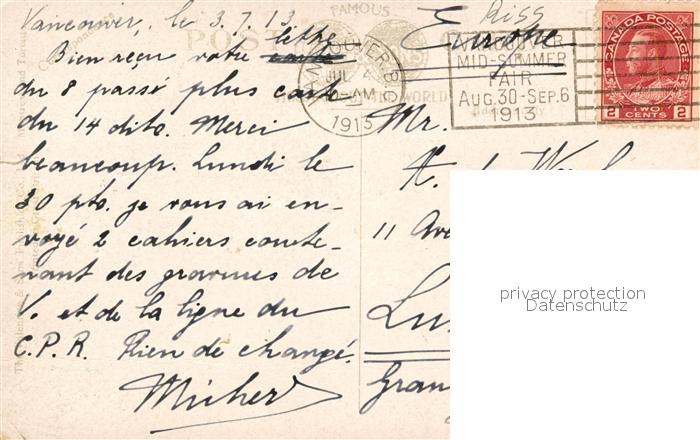 Vancouver, le 3.7.13.
Bien reçu votre lettre
du 8 passé plus carte
du 14 dito. Merci
beaucoup. Lundi le
30 pto. je vous ai en-
voyé 2 cahiers conte-
nant des gravures de
V. et de la ligne du
C.P.R. Rien de changé.
FAMOUS
POST
WORLD
VANCOUVER B.C.
JUL 4
AM
1913
Europe
VANCOUVER
MID-SUMMER
FAIR
AUG.30-SEP.6
1913
CANADA POSTAGE
2 TWO 2
CENTS
Mr.
11 Ave
Lu
Gran
privacy protection
Datenschutz